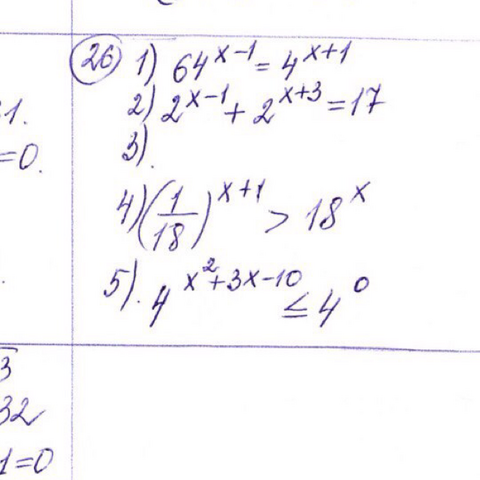 31.
=0.
26 1) 64^{x-1} = 4^{x+1}
2) 2^{x-1} + 2^{x+3} = 17
3)
4) (1/18)^{x+1} > 18^x
5). 4^{x^2+3x-10} ≤ 4^0
3
32
1=0